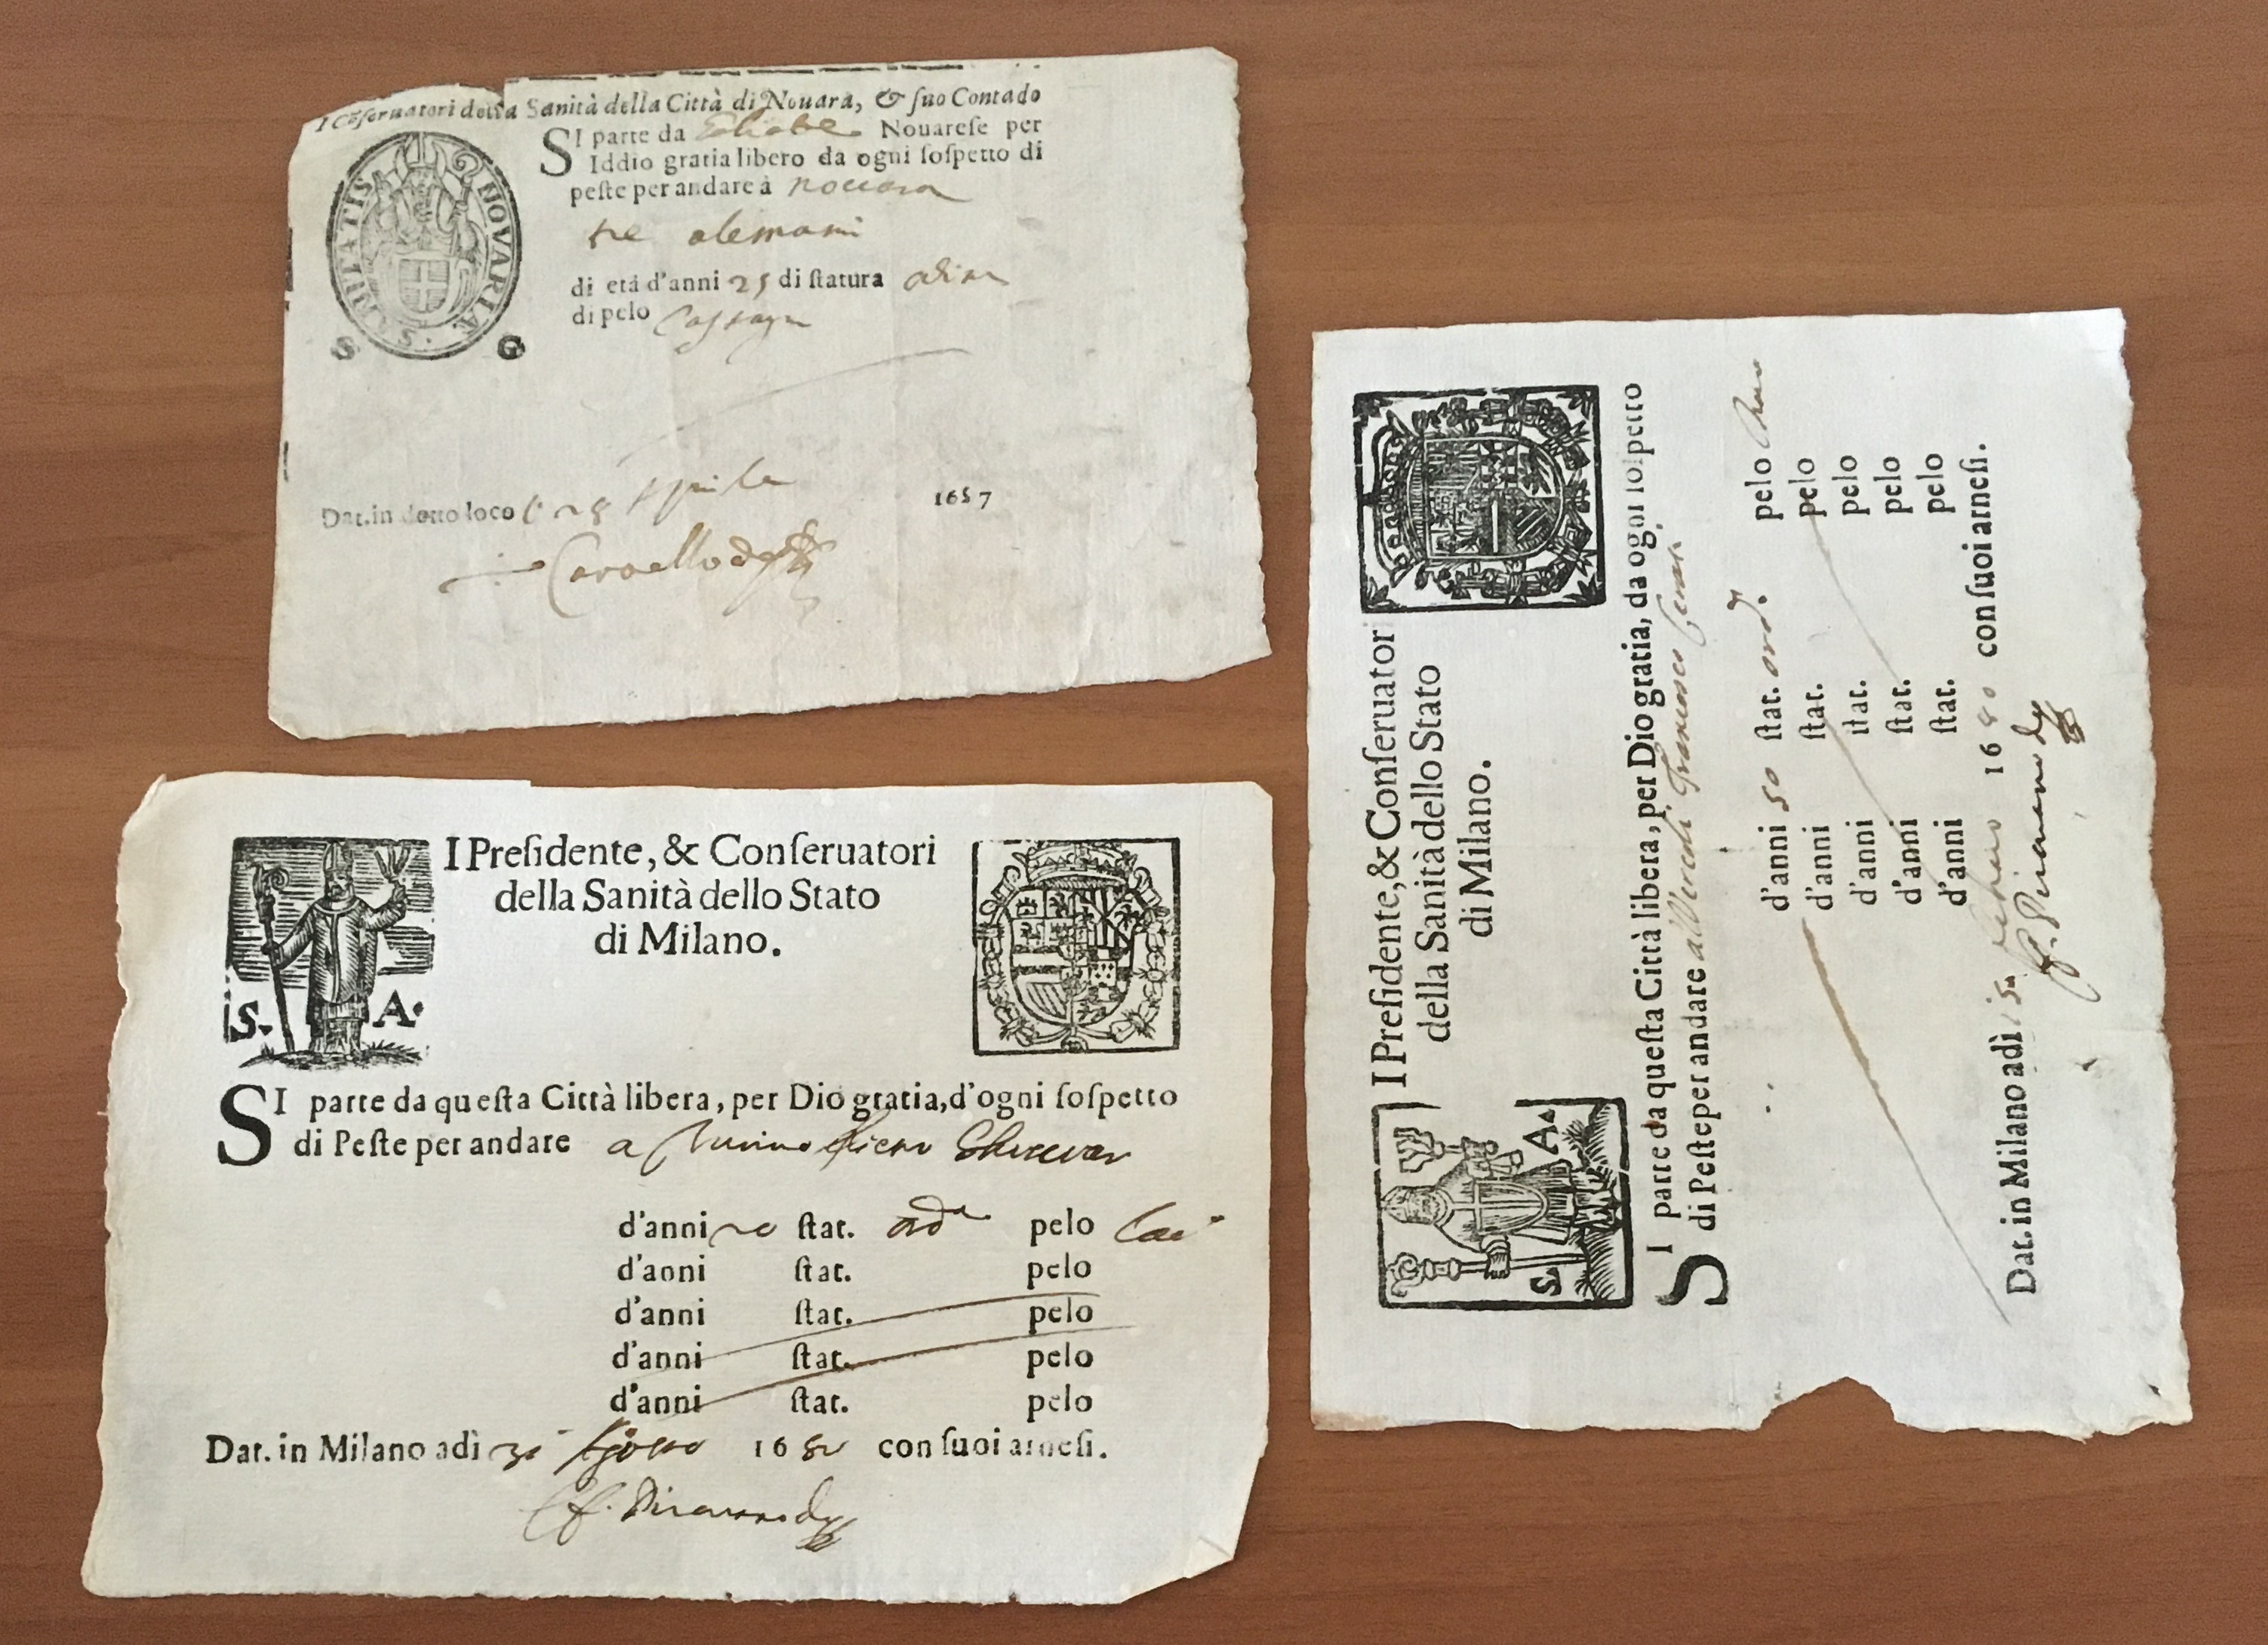 I Cõſeruatori della Sanità della Città di Nouara, & ſuo Contado
SANITATIS NOVARIÆ
S G
SI parte da Nouareſe per
Iddio gratia libero da ogni ſoſpetto di
peſte per andare à nouara
tre alemani
di età d'anni 25 di ſtatura
di pelo
Dat. in detto loco 28 Aprile 1657
I Preſidente, & Conſeruatori
della Sanità dello Stato
di Milano.
S. A.
SI parte da queſta Città libera, per Dio gratia, d'ogni ſoſpetto
di Peſte per andare a
d'anni ſtat. ord.ª pelo
d'aoni ſtat. pelo
d'anni ſtat. pelo
d'anni ſtat. pelo
d'anni ſtat. pelo
Dat. in Milano adì 31 Agosto 168 con ſuoi arneſi.
I Preſidente, & Conſeruator
della Sanità dello Stato
di Milano.
S. A.
SI parte da queſta Città libera, per Dio gratia, da ogni ſoſpetto
di Peſte per andare a Vercelli Francesco
d'anni 50 ſtat. ord. pelo
d'anni ſtat. pelo
d'anni ſtat. pelo
d'anni ſtat. pelo
d'anni ſtat. pelo
Dat. in Milano adì 1680 con ſuoi arneſi.